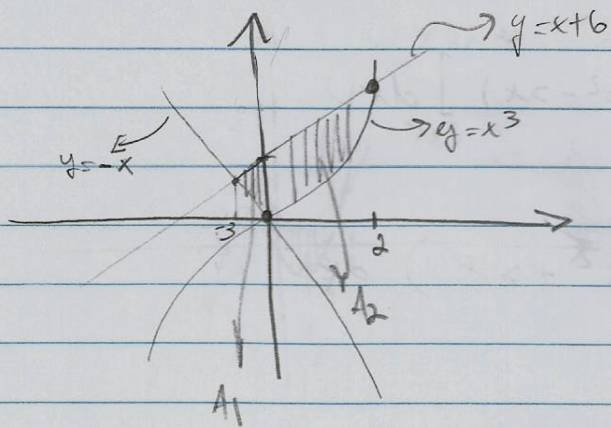 y=x+6
y=x³
y=-x
-3
2
A2
A1